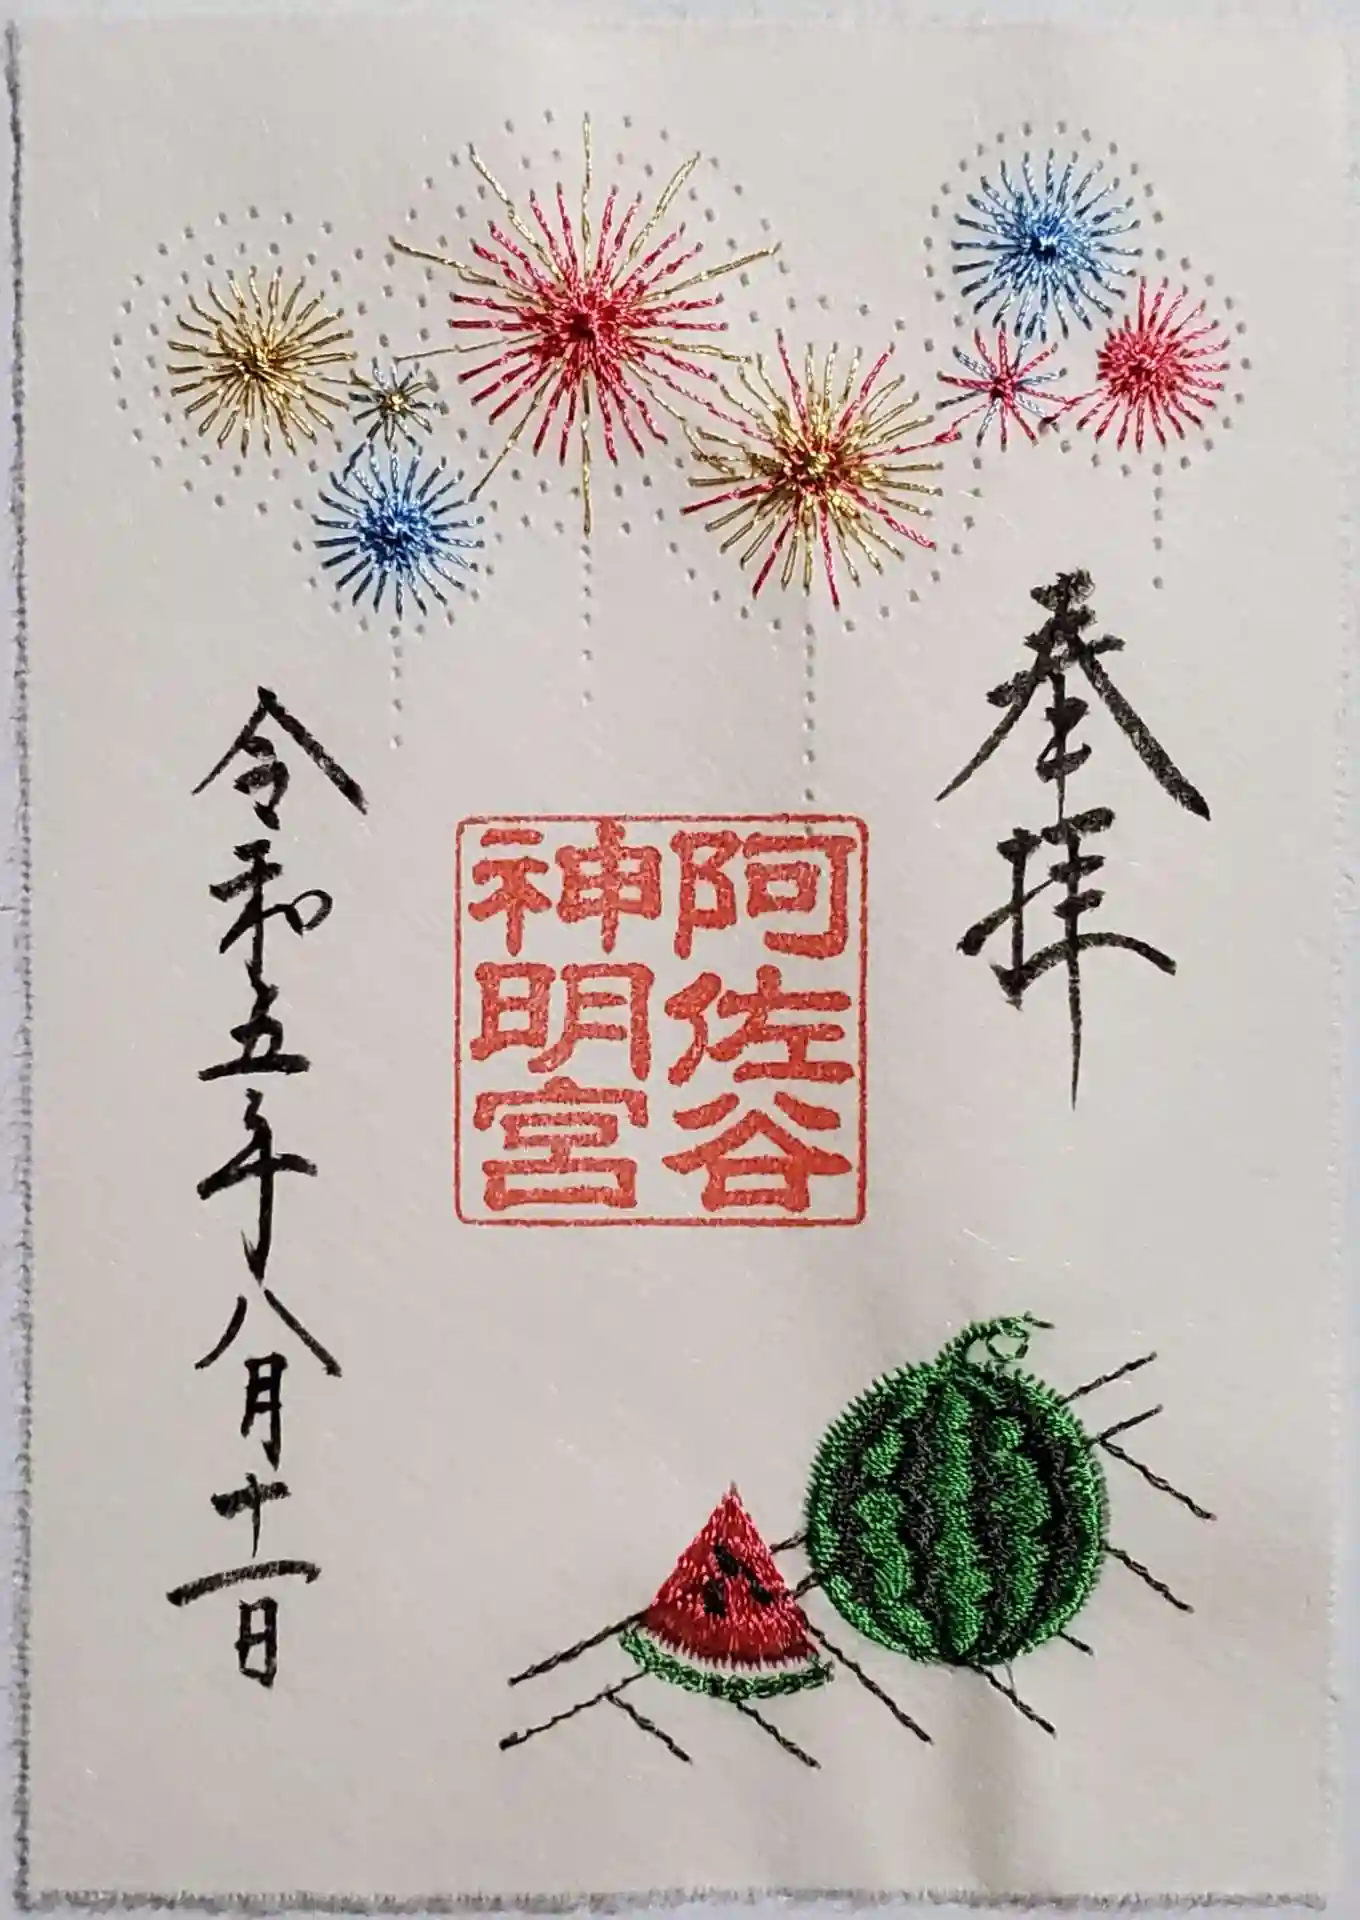 奉拝
阿佐谷
神明宮
令和五年八月十一日